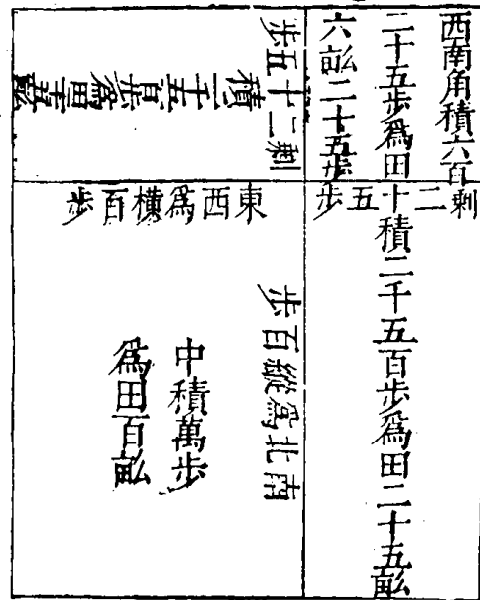 西南角積六百
二十五步爲田
六畝二十五步
剩二十五步
積二千五百步爲田二十五畝
剩二十五步
積二千五百步爲田二十五畝
東西爲横百步
南北爲縱百步
中積萬步
爲田百畝